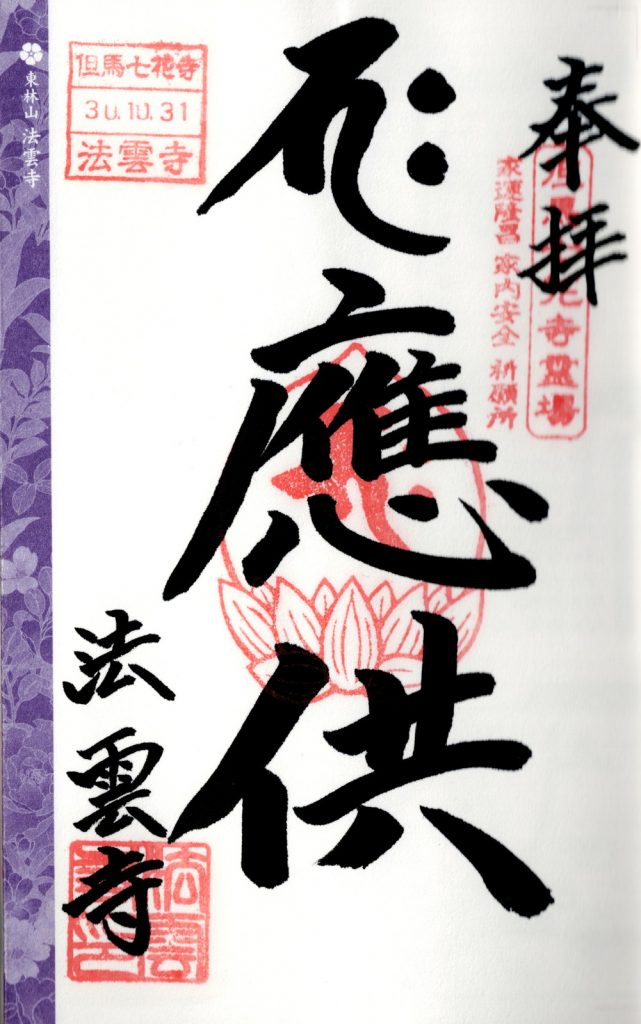 奉拝
但馬七花寺霊場
家運隆昌 家内安全 祈願所
應供
但馬七花寺
30.10.31
法雲寺
法雲寺
東林山 法雲寺